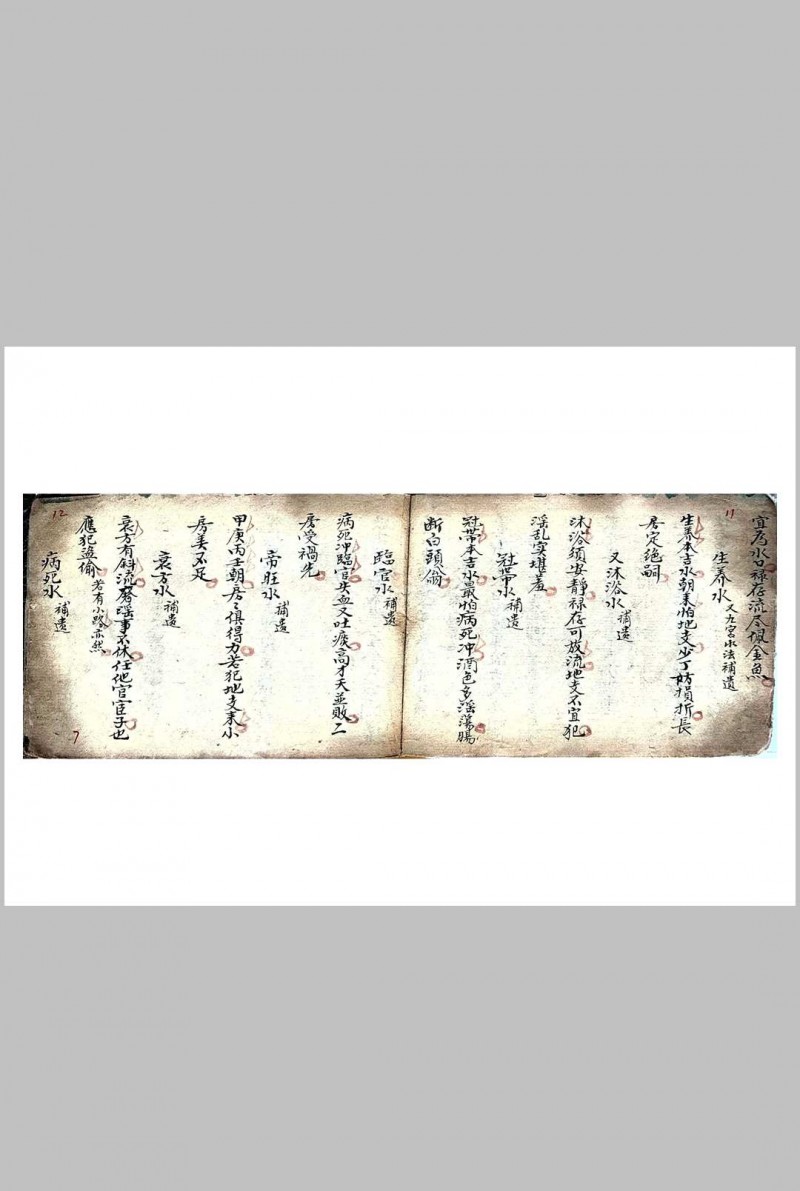 11
宜為水口禄存流尽佩金魚
生养水 又九宮水法補遺
生养本吉水朝来怕地支少丁妨損折長
居定绝嗣
又沐浴水 補遺
沐浴須安靜禄存可放流地支不宜犯
淫乱实堪羞
冠带水 補遺
冠带本吉水最怕病死冲酒色多淫蕩腸
断白頭翁
臨官水 補遺
病死冲臨官失血又吐痰高才夭並敗二
房受禍先
帝旺水 補遺
甲庚丙壬朝房々俱得力若犯地支来小
房美不足
衰方水 補遺
衰方有斜流磨瑶事不休任他官宦子也
應犯盗偷 若有小路亦然
病死水 補遺
12
7